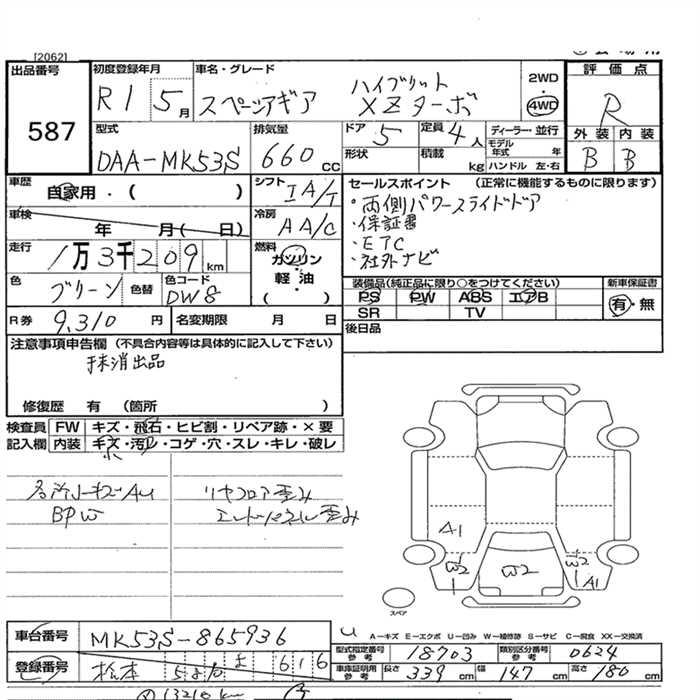 [2062]
出品番号 初度登録年月 車名・グレード 評価点
587 R1 5月 スペーシアギア ハイブリット XZターボ 2WD 4WD R
型式 排気量 ドア 5 定員 4人 ディーラー・並行 外装 内装
DAA-MK53S 660cc 形状 積載 kg モデル年式 年 ハンドル 左・右 B B
車歴 自家用・( ) シフト IA/T セールスポイント (正常に機能するものに限ります)
車検 年 月( 日) 冷房 AA/C ・両側パワースライドドア
・保証書
走行 1万3千209km 燃料 ガソリン・軽油 ( ) ・ETC
・社外ナビ
色 グリーン 色替 色コード DW8 装備品(純正品に限り○をつけてください) 新車保証書
PS PW ABS エアB 有・無
SR TV
R券 9,310円 名変期限 月 日 後日品
注意事項申告欄(不具合内容等は具体的に記入して下さい)
抹消出品
修復歴 有 (箇所 )
検査員 FW キズ・飛石・ヒビ割・リペア跡・×要
記入欄 内装 キズ・汚れ・コゲ・穴・スレ・キレ・破レ
各所小キズAU リヤフロア歪み
BPW エンドパネル歪み
A1
W2 W2 W2 A1
スペア
車台番号 MK53S-865936
A-キズ E-エクボ U-凹み W-補修跡 S-サビ C-腐食 XX-交換済
型式指定番号 参考 18703 類別区分番号 参考 0624
登録番号 松本 580 616
車庫証明用 参考 長さ 339cm 幅 147cm 高さ 180cm